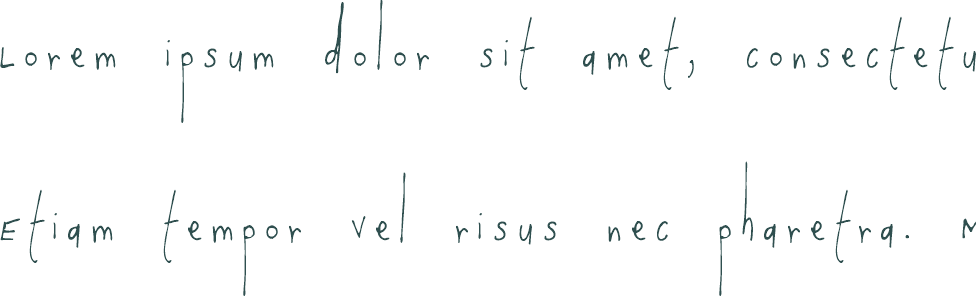 Lorem ipsum dolor sit amet, consectetu
Etiam tempor vel risus nec pharetra.